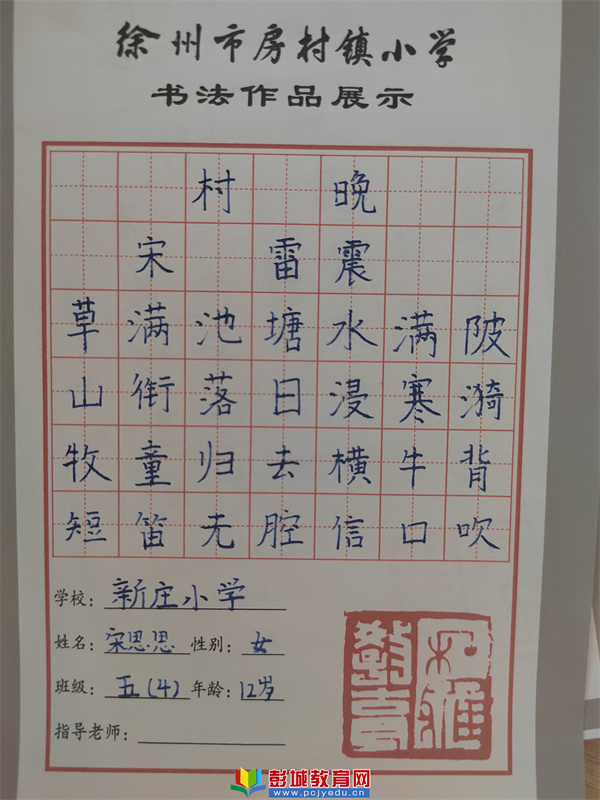 徐州市房村镇小学
书法作品展示
村晚
宋 雷震
草满池塘水满陂
山衔落日浸寒漪
牧童归去横牛背
短笛无腔信口吹
学校：新庄小学
姓名：宋思思 性别：女
班级：五（4） 年龄：12岁
指导老师：
彭城教育网
www.pcjyedu.cn